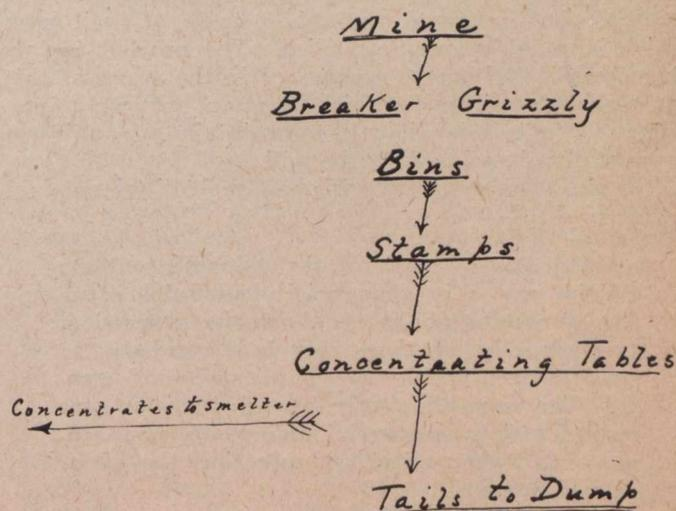 Mine
Breaker Grizzly
Bins
Stamps
Concentrating Tables
Concentrates to smelter
Tails to Dump